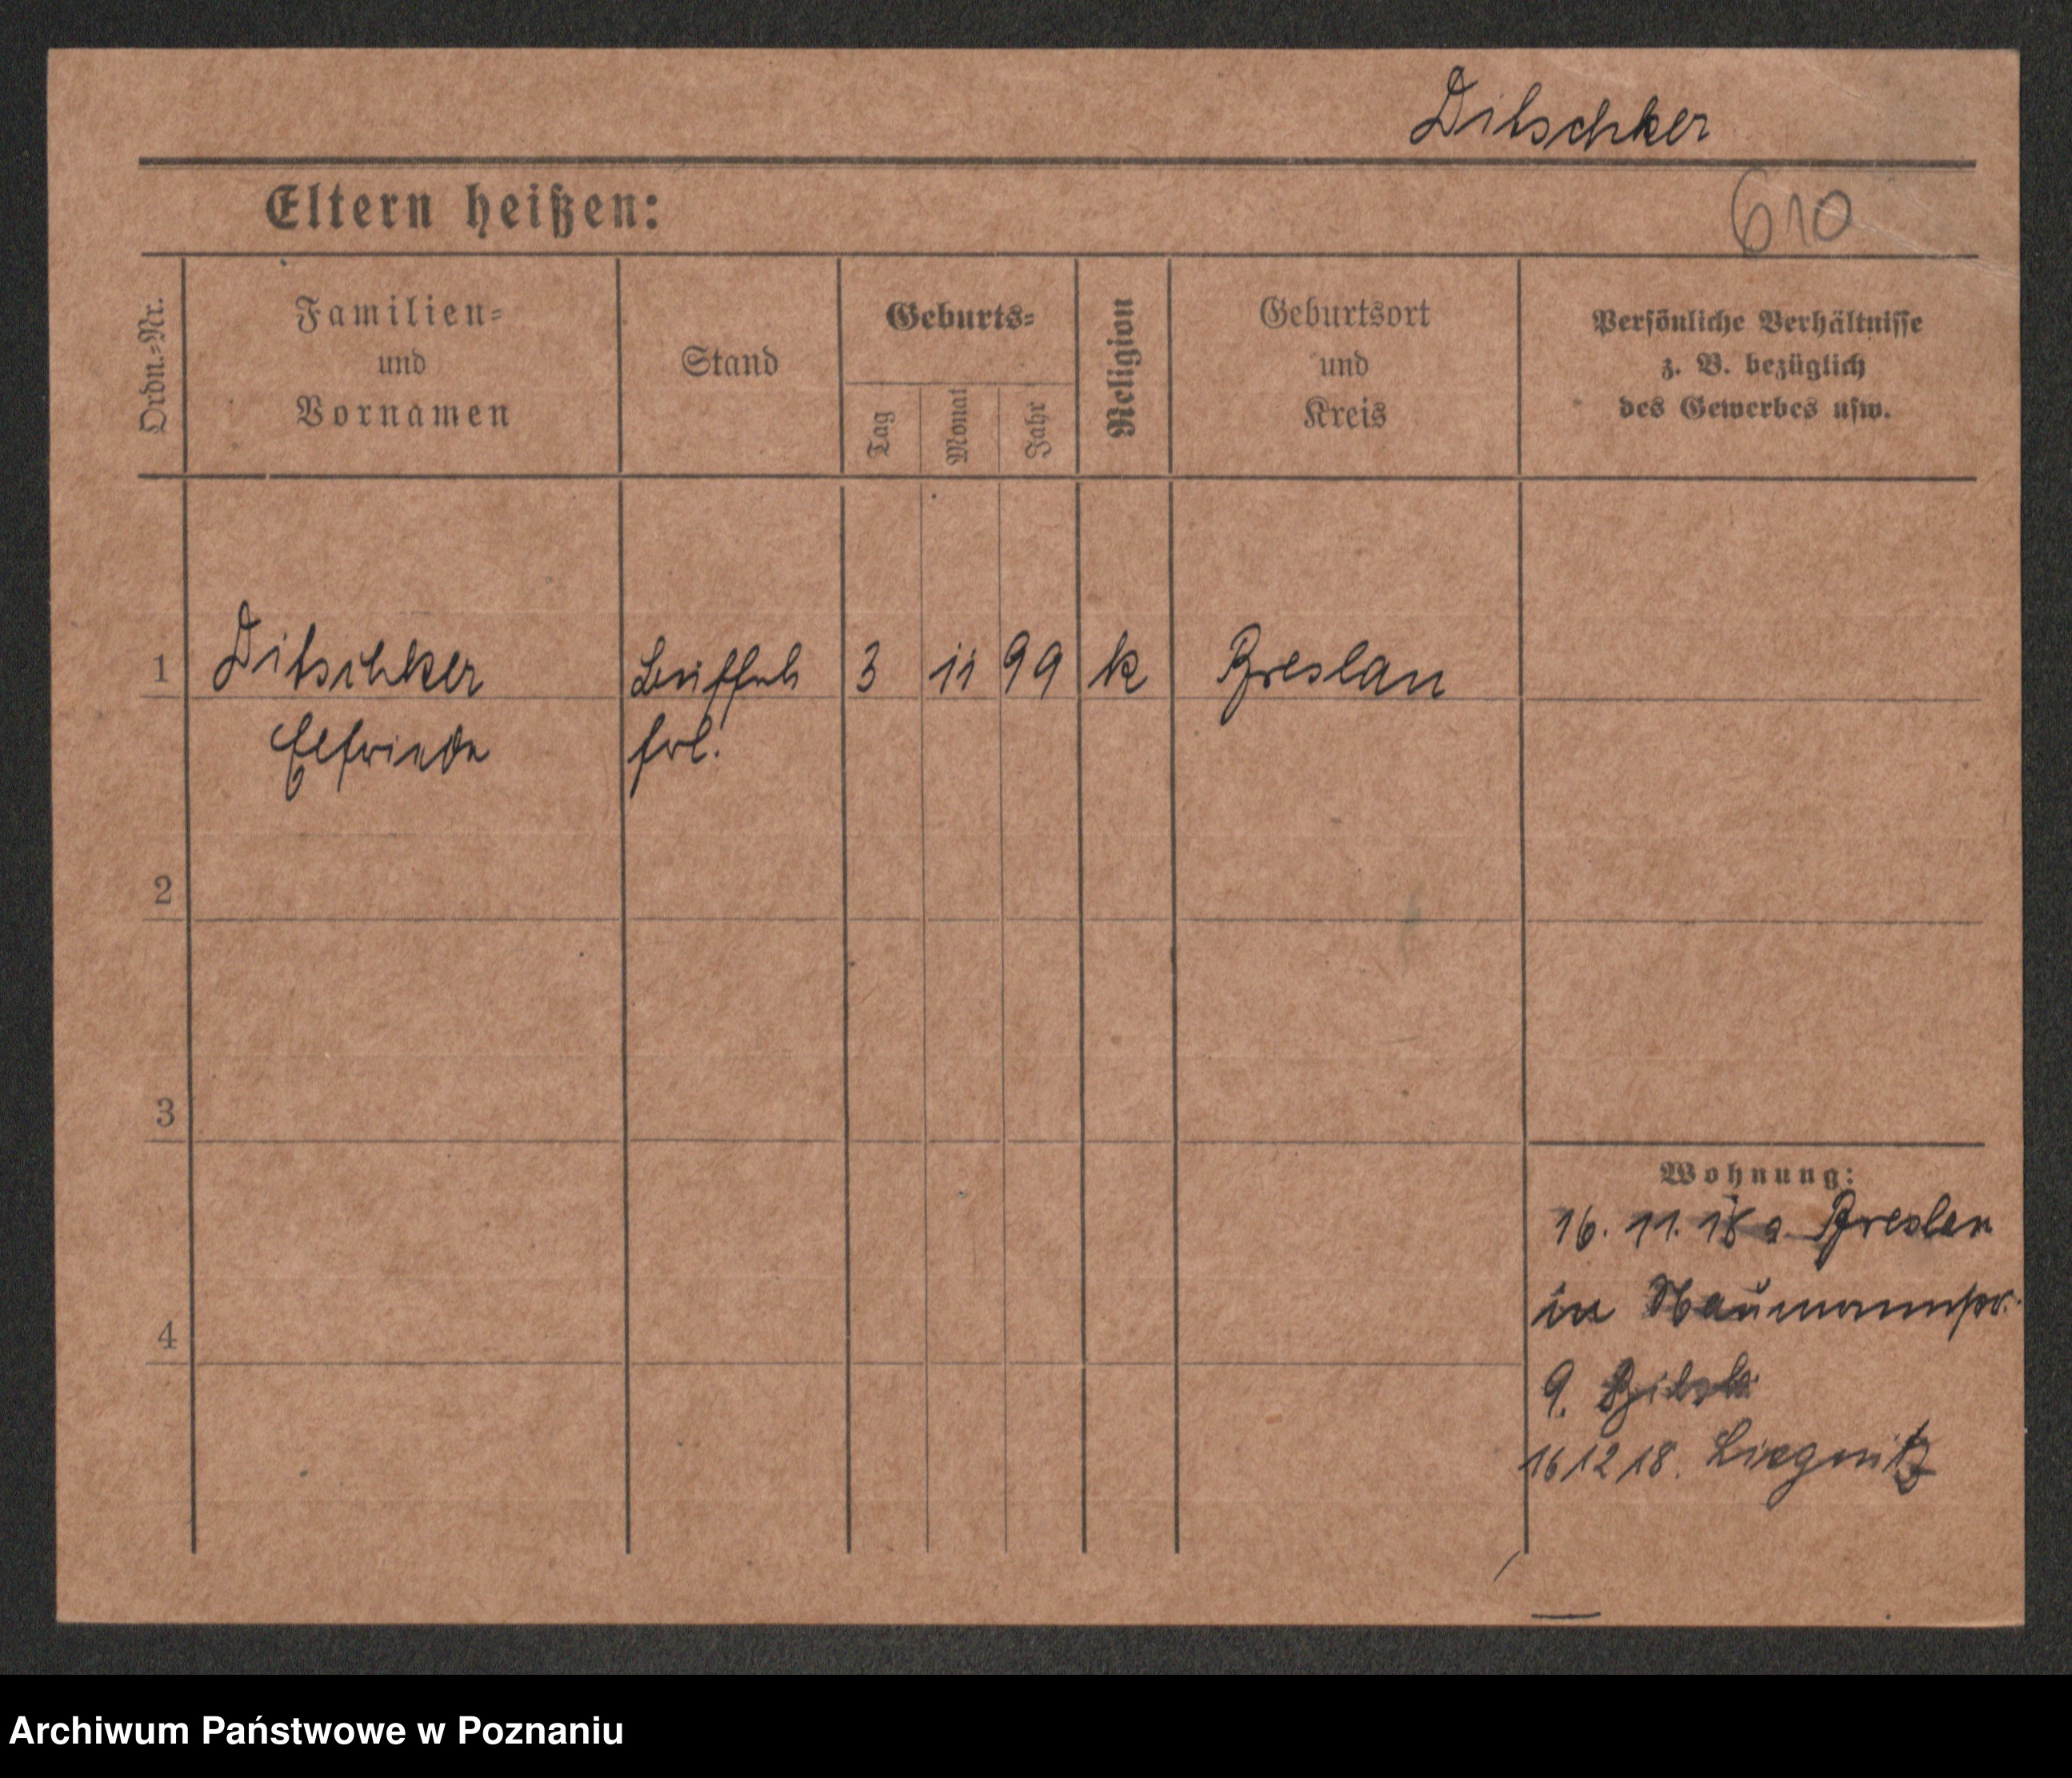 Ditschker
Eltern heißen:
610
Ordn.-Nr.
Familien-
und
Vornamen
Stand
Geburts-
Tag
Monat
Jahr
Religion
Geburtsort
und
Kreis
Persönliche Verhältnisse
z. B. bezüglich
des Gewerbes usw.
1 Ditschker Buffet 3 11 99 k Breslau
Elfriede frl.
2
3
4
Wohnung:
16. 11. 18 a Breslau
in Naumannstr.
9.
16 12 18. Liegnitz
Archiwum Państwowe w Poznaniu